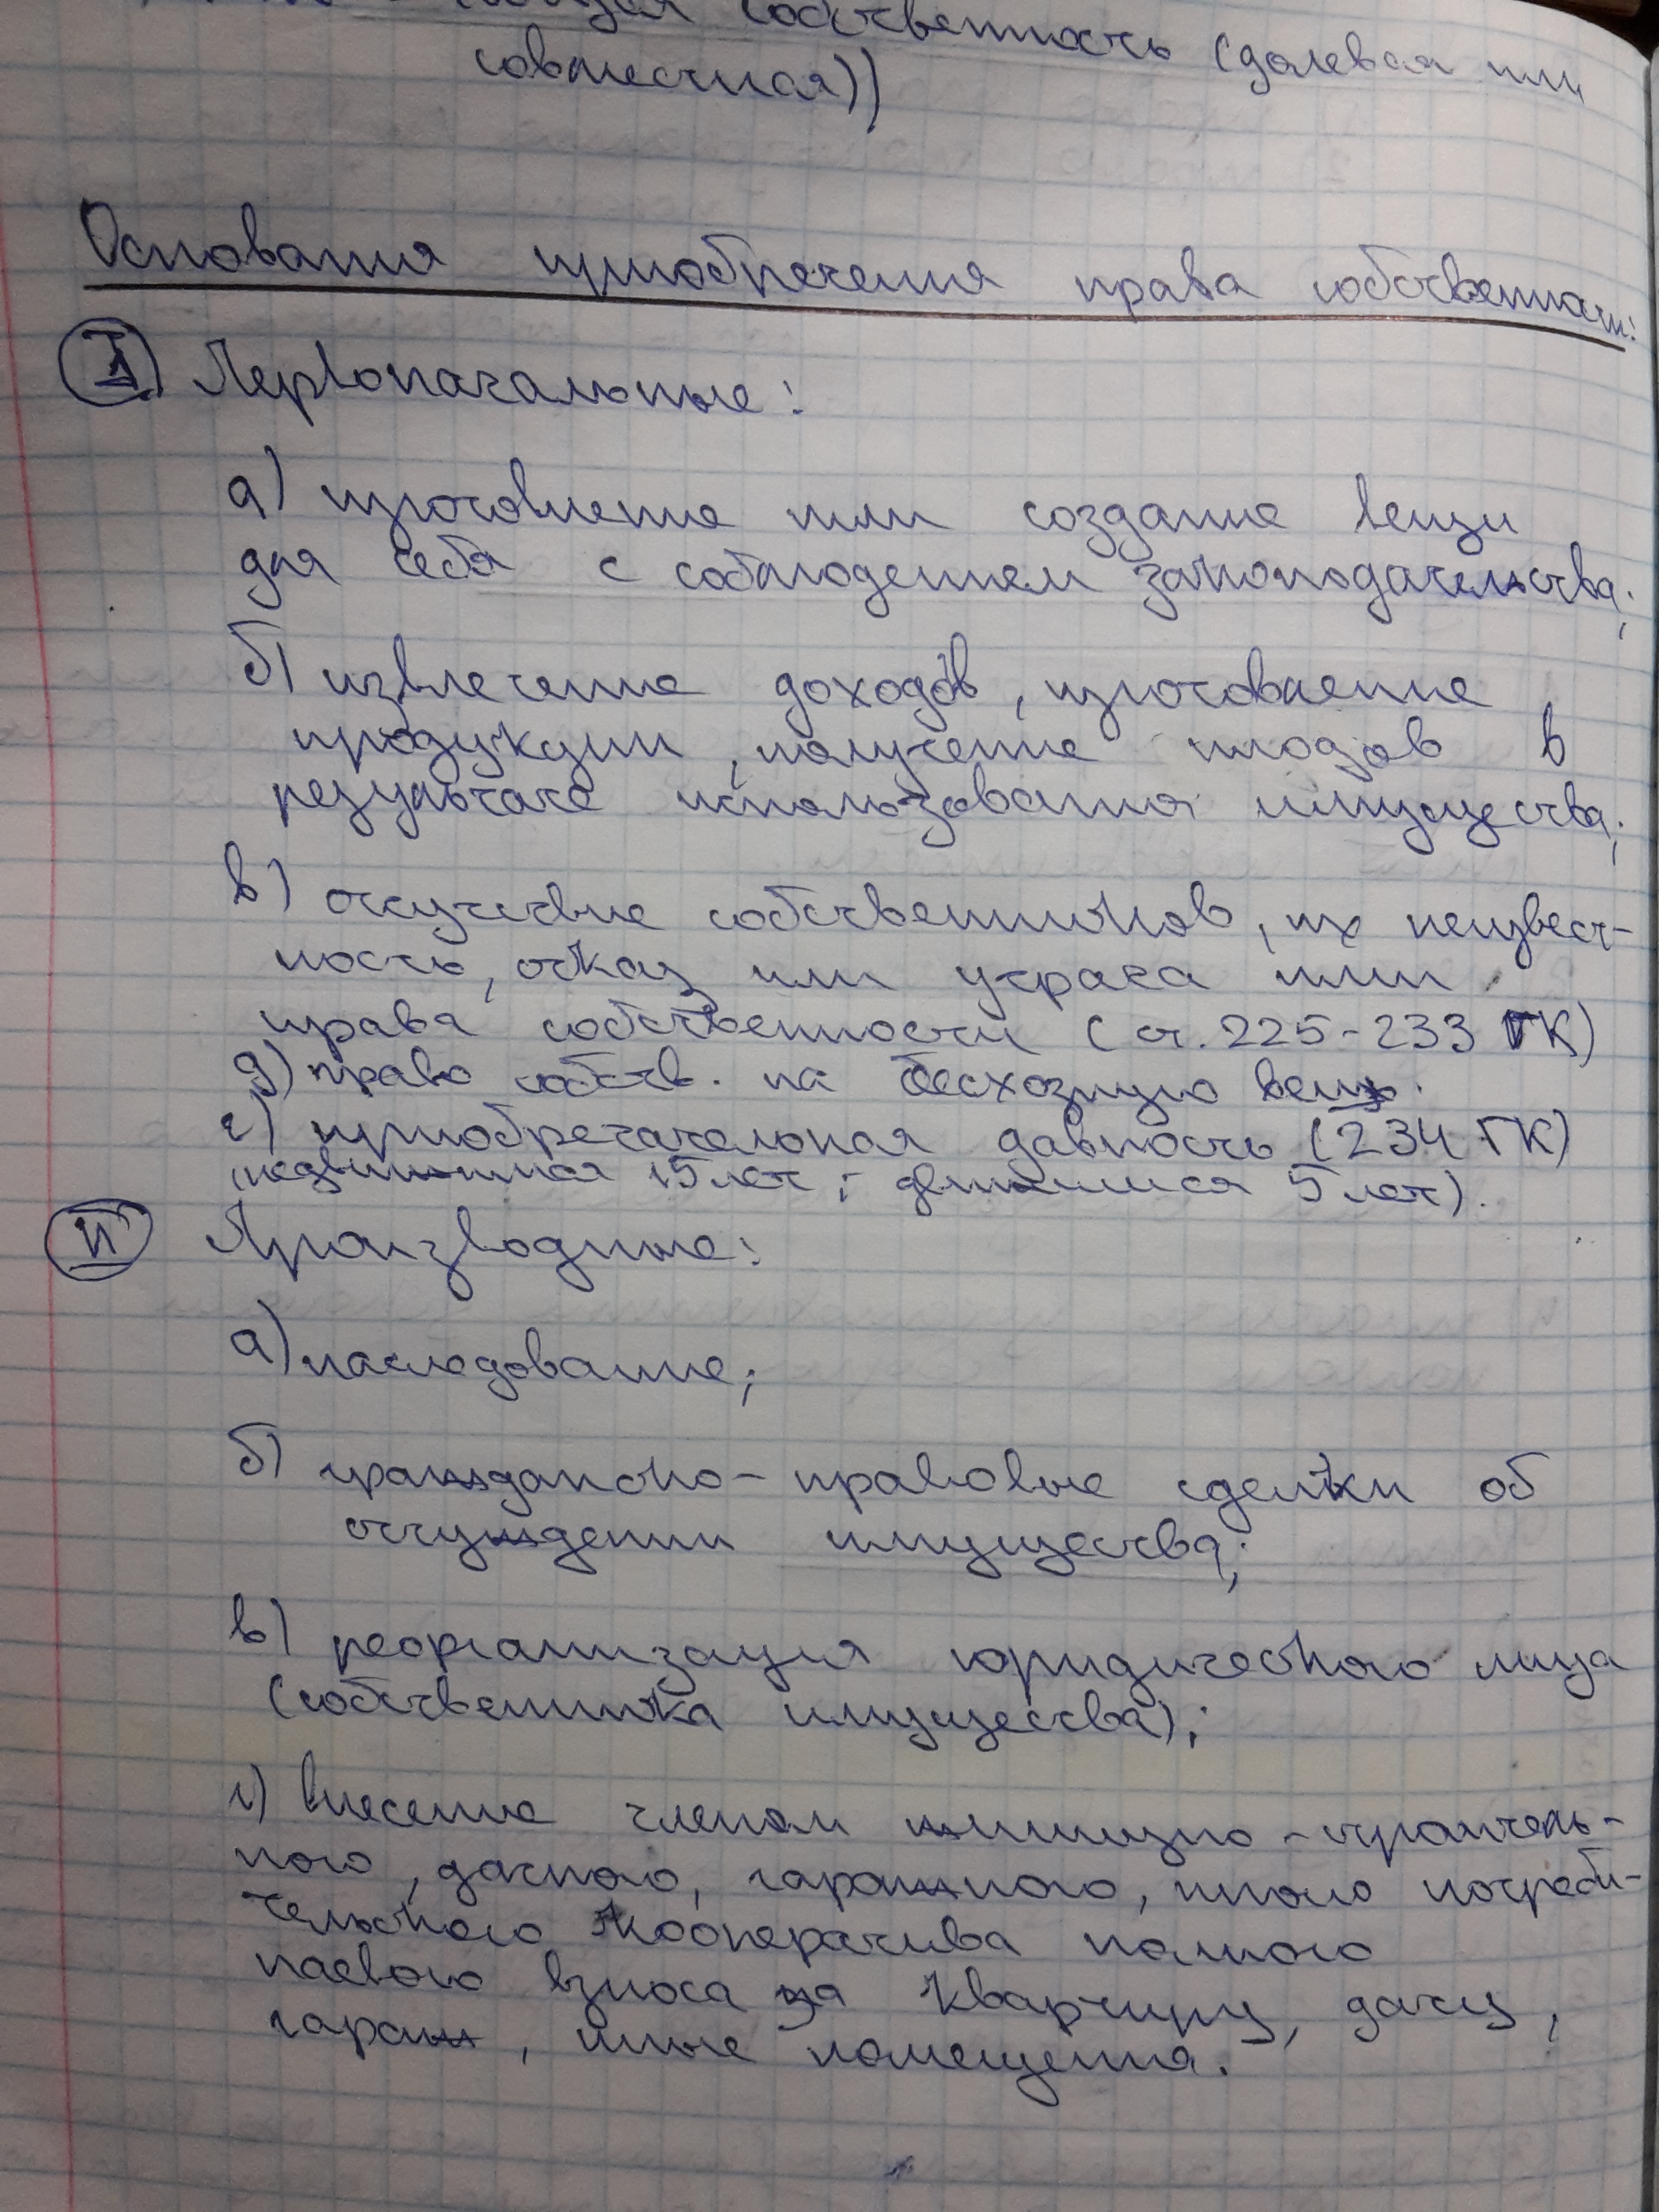 общая собственность (долевая или
совместная))
Основания приобретения права собственности:
I Первоначальные:
а) изготовление или создание вещи
для себя с соблюдением законодательства;
б) извлечение доходов, изготовление
продукции, получение плодов в
результате использования имущества;
в) отсутствие собственников, их неизвест-
ность, отказ или утрата ими
права собственности (ст. 225-233 ГК)
д) право собств. на бесхозную вещь.
г) приобретательная давность (234 ГК)
(недвижимая 15 лет; движимая 5 лет).
II Производные:
а) наследование;
б) гражданско-правовые сделки об
отчуждении имущества;
в) реорганизация юридического лица
(собственника имущества);
г) внесение членом жилищно-строитель-
ного, дачного, гаражного, иного потреби-
тельского кооператива полного
паевого взноса за квартиру, дачу,
гараж, иные помещения.